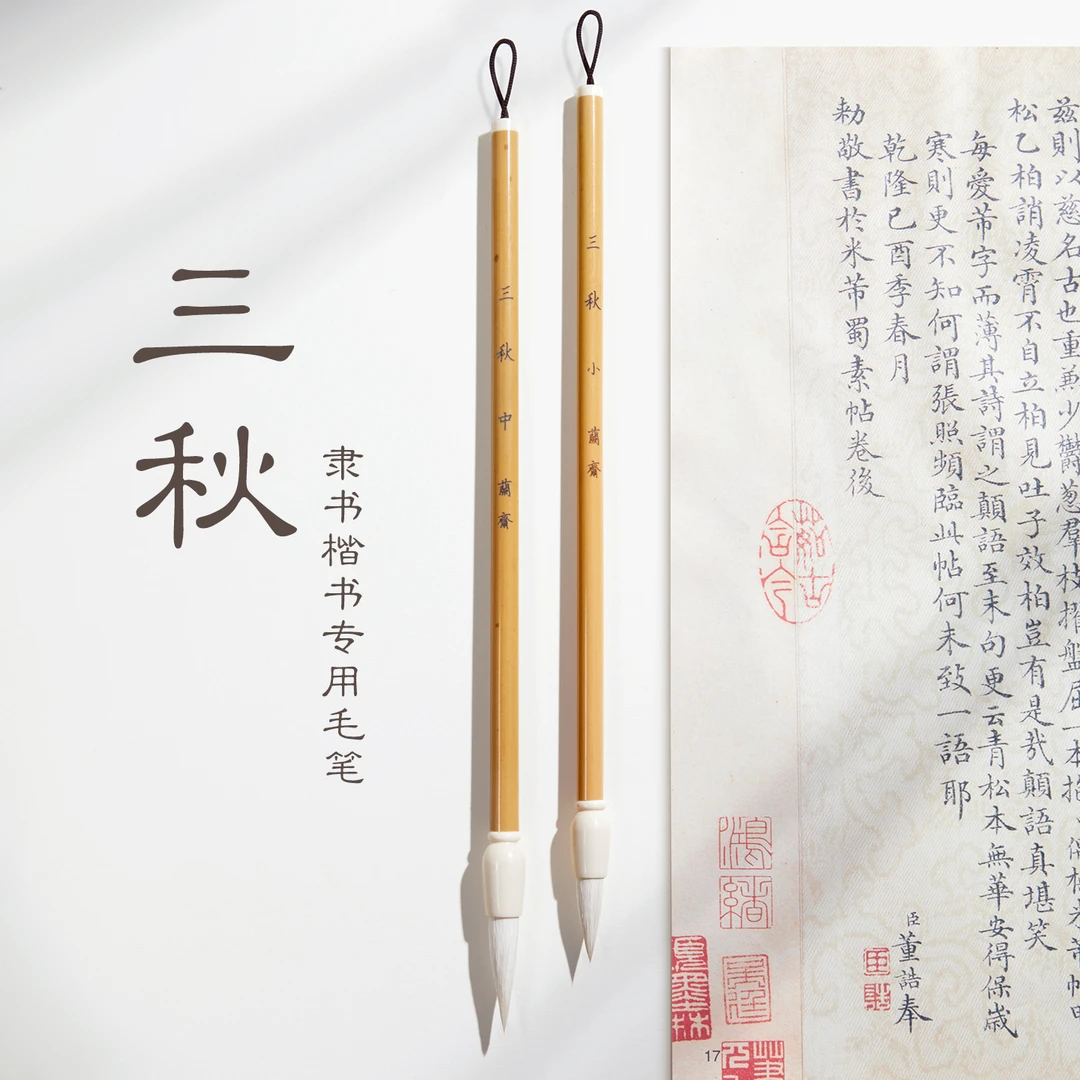 三秋
隶书楷书专用毛笔
三秋 中 蘭齋
三秋 小 蘭齋
茲則以慈名古也重兼少鬱葱羣枝揩盤屈一本抱
松乙柏誚凌霄不自立柏見吐子效柏豈有是哉顛語真堪笑
每愛芾字而薄其詩謂之顛語至末句更云青松本無華安得保歲
寒則更不知何謂張照頻臨此帖何未致一語耶
乾隆已酉季春月
勅敬書於米芾蜀素帖卷後
臣董誥奉
17